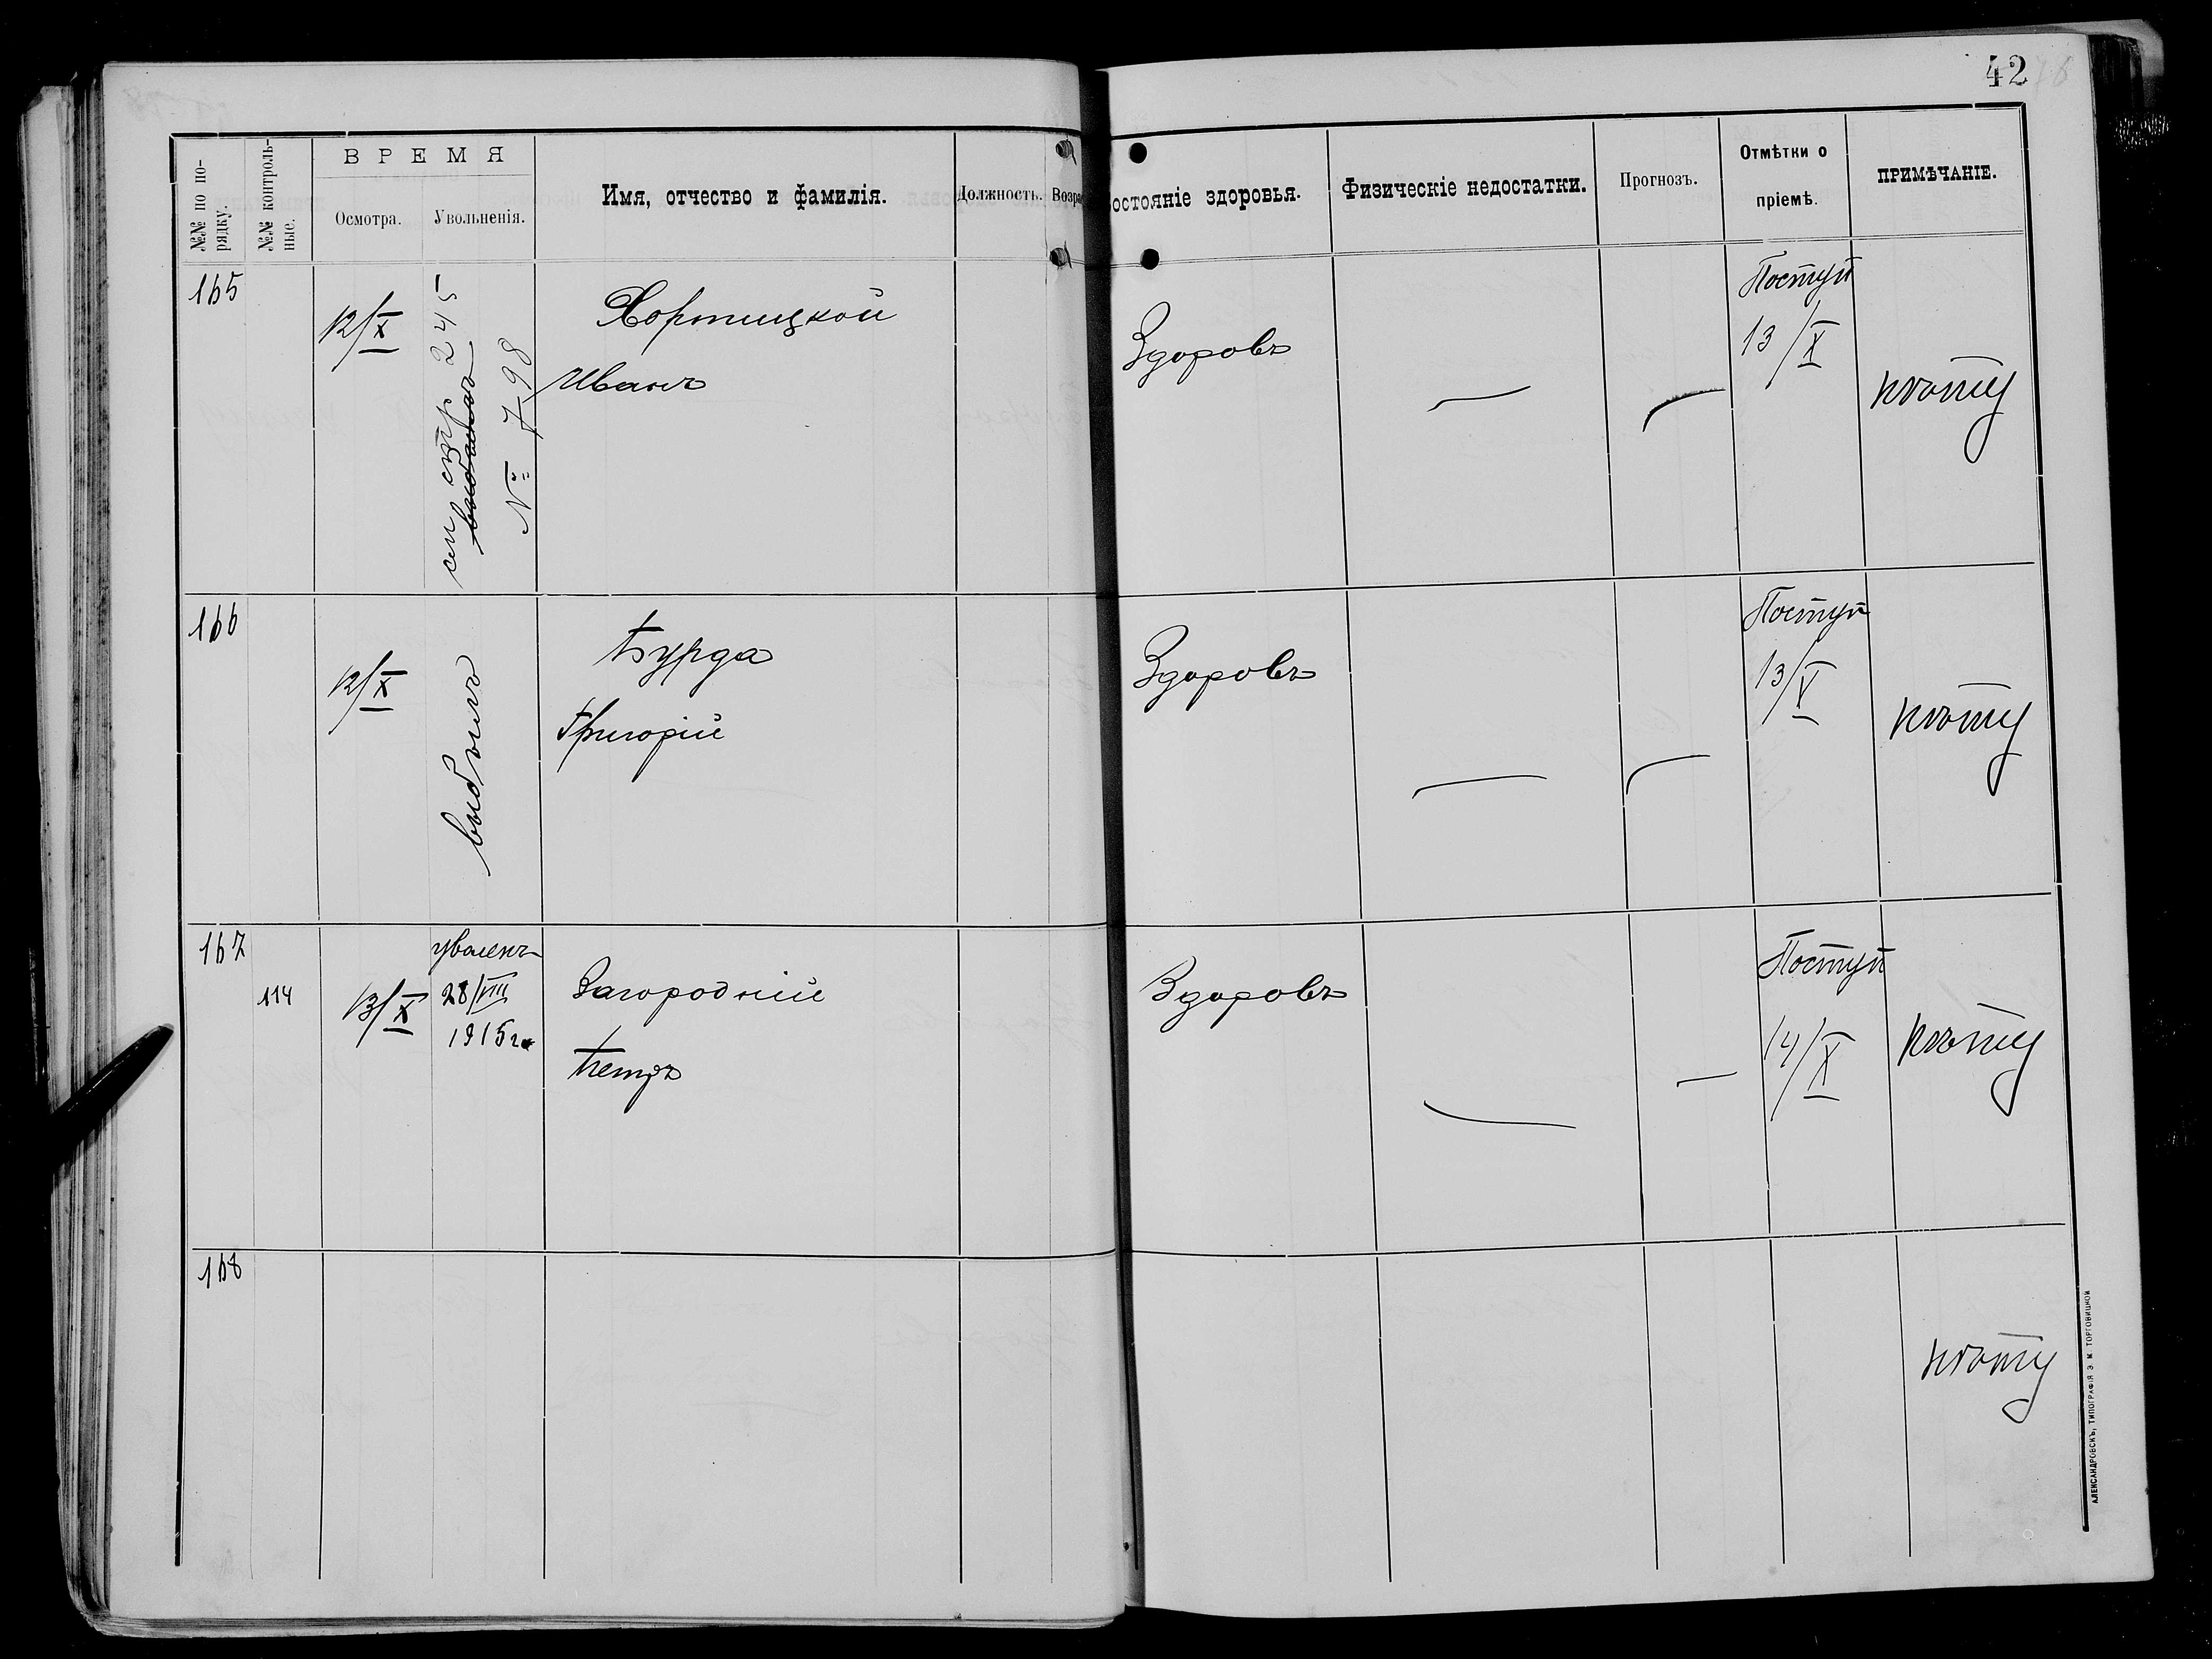 42
№№ по по-
рядку.
№№ контроль-
ные.
ВРЕМЯ
Осмотра.
Увольненія.
Имя, отчество и фамилія.
Должность.
Возра
остояніе здоровья.
Физическіе недостатки.
Прогнозъ.
Отмѣтки о
пріемѣ.
ПРИМѢЧАНІЕ.
165
12/X
см стр 245
№ 798
Хортицкой
Иванъ
Здоровъ
Поступ
13/X
166
12/X
выбылъ
Бурда
Григорій
Здоровъ
Поступ
13/X
167
114
13/X
уволенъ
28/VIII
1915 г
Загородній
Петръ
Здоровъ
Поступ
14/X
168
АЛЕКСАНДРОВСКЪ, ТИПОГРАФІЯ Э. М. ТОРГОВИЦКОЙ